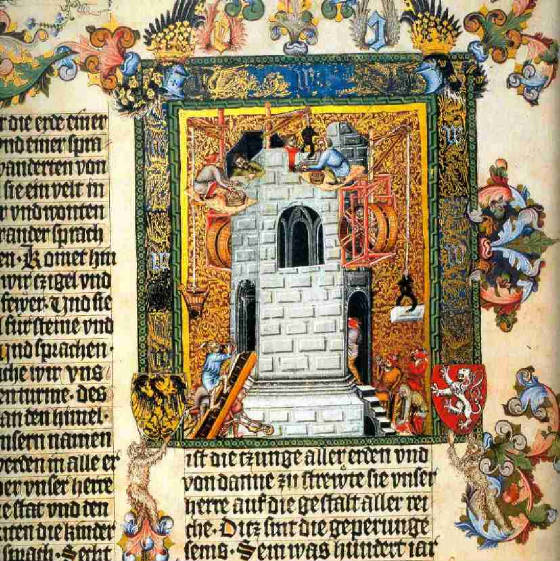 r die erde einer
vnd einer spra
wanderten von
sie ein velt in
r vnd wonten
rander sprach
en · Komet hin
wir czigel vnd
fewer · Vnd sie
l fur steine vnd
vnd sprachen ·
che wir vns
en turme · des
an den himel ·
nsern namen
werden in alle er
er vnser herre
e stat vnd den
uten die kinder
sprach · Secht
ist die czunge aller erden vnd
von danne zu strewte sie vnser
herre auf die gestalt aller rei
che · Dicz sint die geperunge
sems · Sem was hundert iar